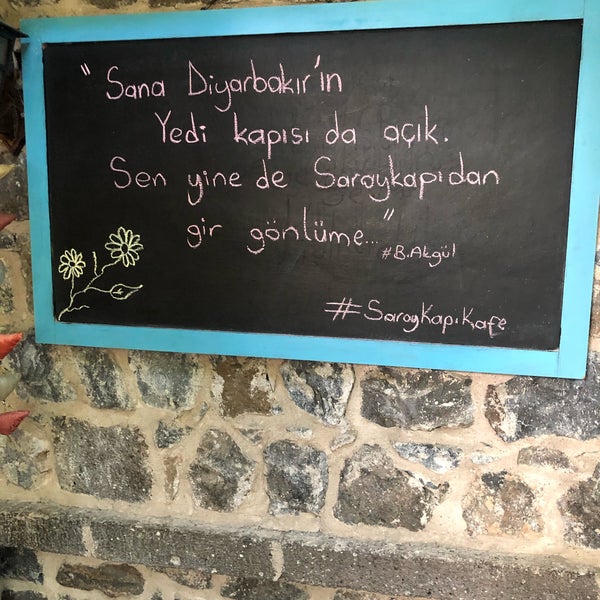 "Sana Diyarbakır'ın
Yedi kapısı da açık.
Sen yine de Saraykapıdan
gir gönlüme..."
#B.Akgül
#SarayKapıKafe